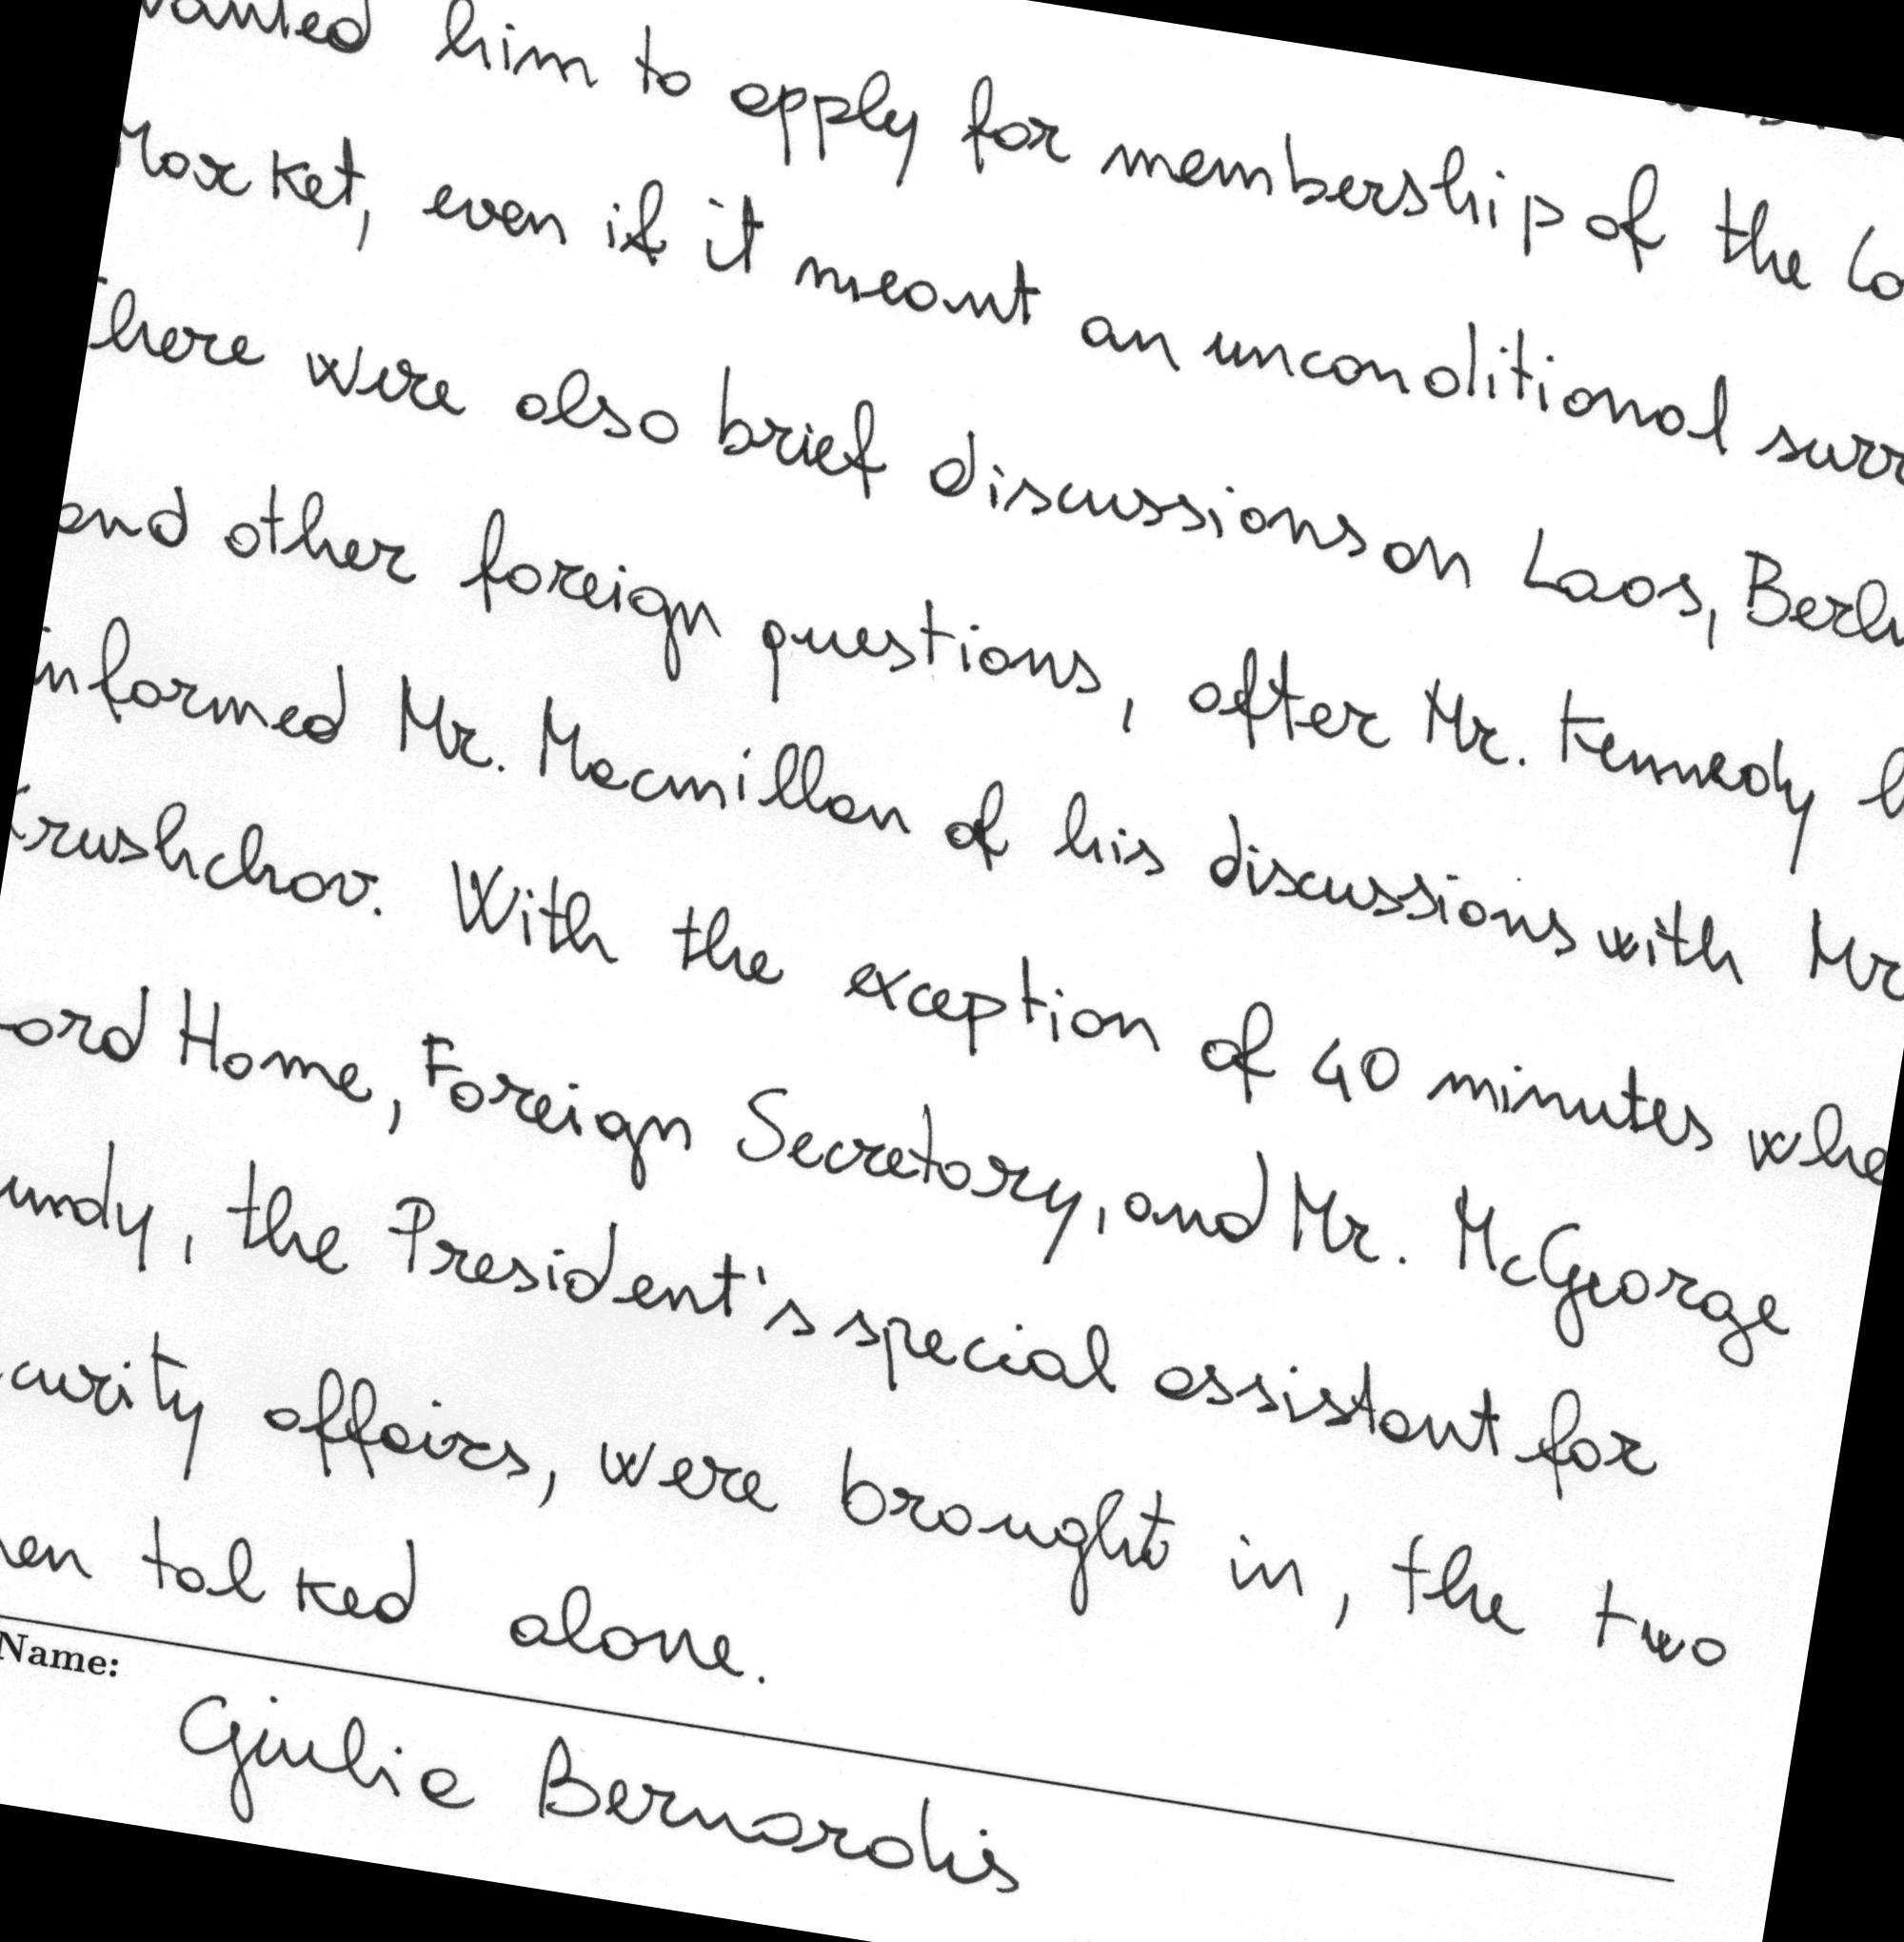 wanted him to apply for membership of the Co
Market, even if it meant an unconditional surr
There were also brief discussions on Laos, Berlin
and other foreign questions, after Mr. Kennedy h
informed Mr. Macmillan of his discussions with Mr
Krushchov. With the exception of 40 minutes whe
ord Home, Foreign Secretary, and Mr. McGeorge
undy, the President's special assistant for
curity affairs, were brought in, the two
en talked alone.
Name:
Giulia Bernardis